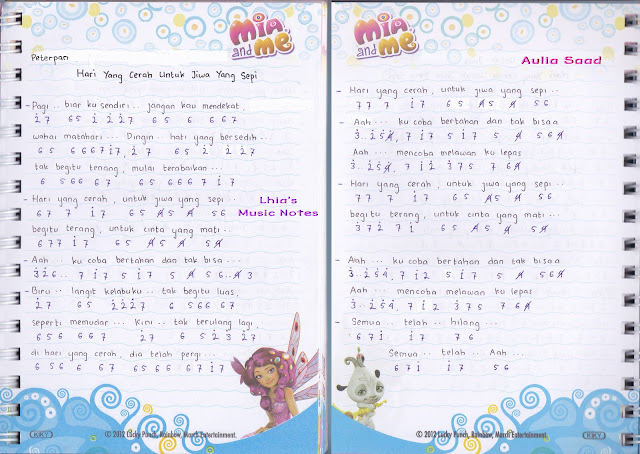 Mia and me
Peterpan
Hari Yang Cerah Untuk Jiwa Yang Sepi
- Pagi .. biar ku sendiri .. jangan kau mendekat,
2̇ 7 6 5 i 2̇ 2̇ 7 6 5 6 6 6 7
wahai matahari... Dingin.. hati yang bersedih...
6 5 6 6 6 7 i 7, 2̇ 7 6 5 2̇ 2̇ 2̇ 7
tak begitu tenang, mulai terabaikan...
6 5 6 6 6 7 6 5 6 6 6 7 i 7
- Hari yang cerah, untuk jiwa yang sepi..
6 7 7 i 7 6 5 4̸ 5 4̸ 5 6
Lhia's
Music Notes
begitu terang, untuk cinta yang mati...
6 7 7 i 7 6 5 4̸ 5 4̸ 5 4̸
- Aah... ku coba bertahan dan tak bisa...
7 i 7 5 i 7 5 4̸
- Biru.. langit kelabuku.. tak begitu luas,
2̇ 7 6 5 2̇ 2̇ 2̇ 7 6 5 6 6 6 7
seperti memudar... Kini.. tak terulang lagi,
6 5 6 6 6 7 2̇ 7 6 5 2̇ 3̇ 2̇ 7
di hari yang cerah, dia telah pergi...
6 5 6 6 6 7 6 5 6 6 6 7 i 7
KKY
© 2012 Lucky Punch, Rainbow, March Entertainment.
Mia and me
Aulia Saad
- Hari yang cerah, untuk jiwa yang sepi...
7 7 7 i 7 6 5 4̸ 5 4̸ 5 6
- Aah... ku coba bertahan dan tak bisaa
7 i 7 5 i 7 5 4̸ 5 6 4̸
Aah... mencoba melawan ku lepas
7 i 2̇ 3̇ 7 5 7 6 4̸
- Hari yang cerah, untuk jiwa yang sepi...
7 7 7 i 7 6 5 4̸ 5 4̸ 5 6
begitu terang, untuk cinta yang mati...
3̇ 7 2̇ 7 i 6 5 4̸ 5 4̸ 5 4̸
- Aah... ku coba bertahan dan tak bisaa
7 i 2̇ 5 i 7 5 4̸ 5 4̸
Aah... mencoba melawan ku lepas
7 i 2̇ 3̇ 7 5 7 6 4̸
- Semua.. telah.. hilang...
6 7 i i 7 7 6
Semua.. telah.. Aah...
6 7 i i 7 5 6
© 2012 Lucky Punch, Rainbow, March Entertainment.
KKY